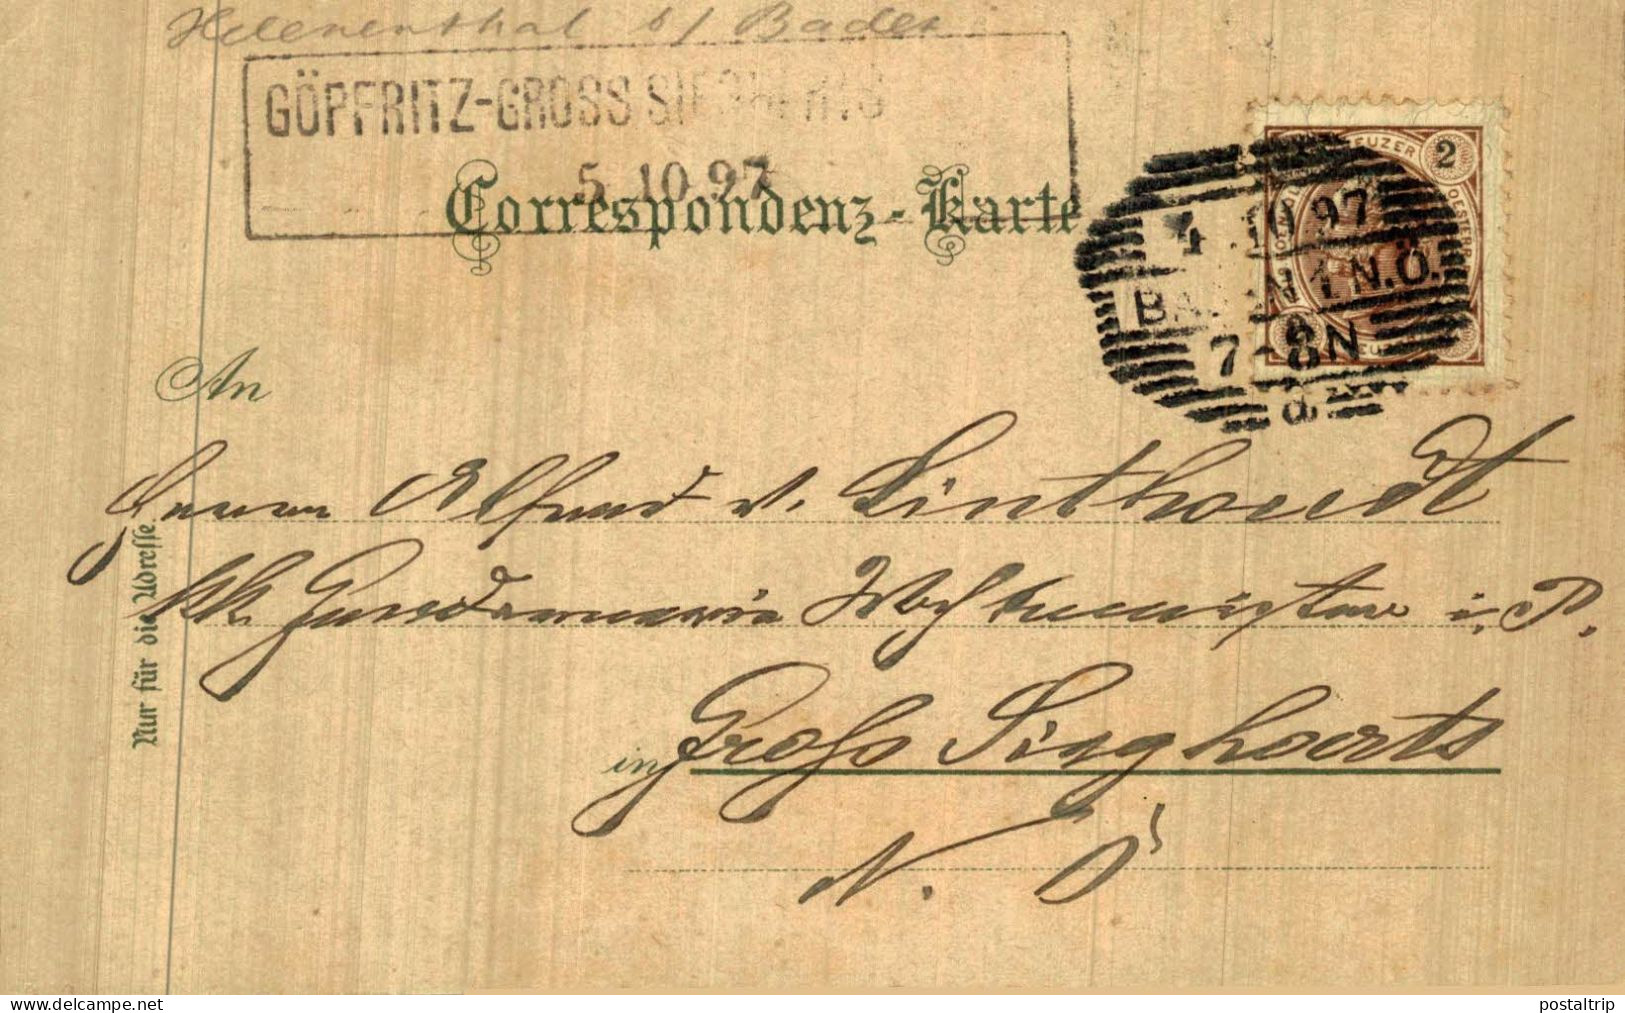 Helenenthal b/ Baden
GÖPFRITZ-GROSS SIEGHARTS
5 10 97
Correspondenz-Karte
KREUZER 2
4 10 97
BADEN 1 N.Ö.
7-8N
d
An
Herrn Alfred v. Linthoudt
kk. Gendarmerie Wachtmeister i. P.
in Gross Siegharts
N. Ö
Nur für die Adresse.
www.delcampe.net
postaltrip